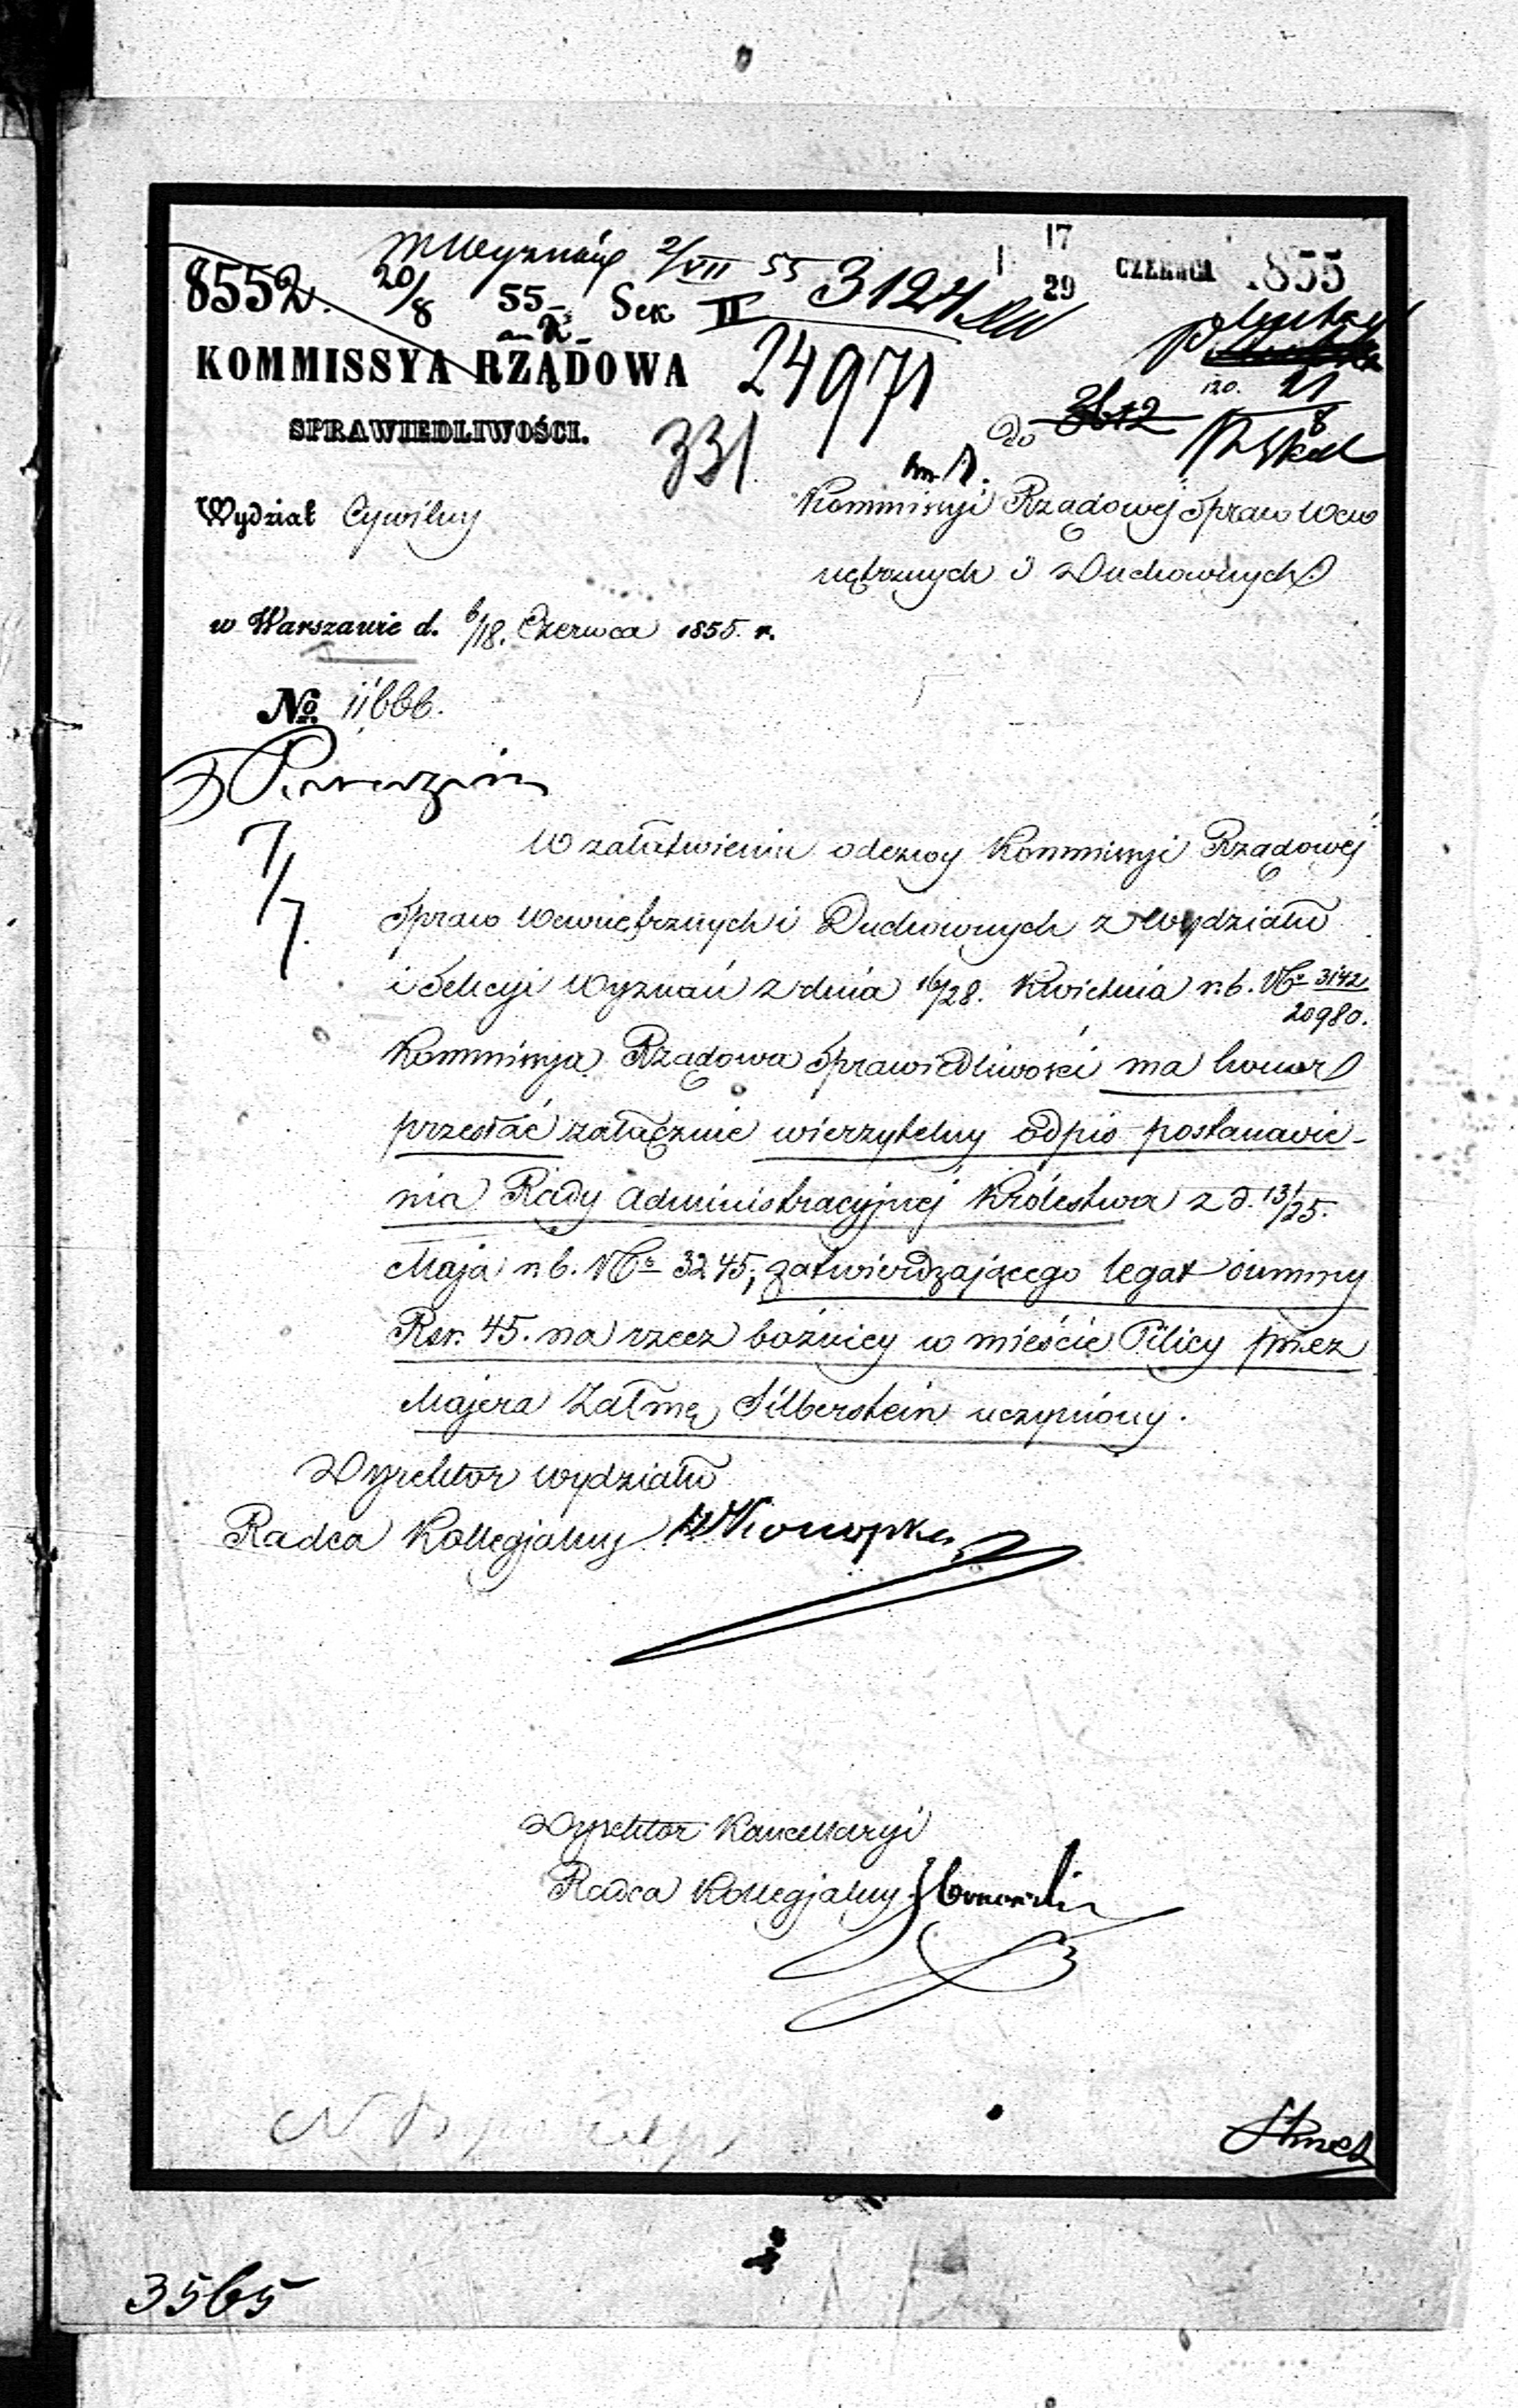 17
29 CZERWCA 1855
8552. 20/8 55 Sek II 2/VII 55 3124
KOMMISSYA RZĄDOWA
SPRAWIEDLIWOŚCI.
24971
331
21
8
Do 3612
Wydział Cywilny
Kommissyi Rządowej Spraw Wew
nętrznych i Duchownych
w Warszawie d. 6/18. Czerwca 1855. r.
No. 11666.
7/7.
W załatwieniu odezwy Kommissyi Rządowej
Spraw Wewnętrznych i Duchownych z Wydziału
i Sekcyi Wyznań z dnia 16/28. Kwietnia r. b. No 3142
20980.
Kommissya Rządowa Sprawiedliwości ma honor
przesłać załącznie wierzytelny odpis postanowie-
nia Rady Administracyjnej Królestwa z d. 13/25.
Maja r. b. No 3245, zatwierdzającego legat summy
Rsr. 45. na rzecz bożnicy w mieście Pilicy przez
Majera Załmę Silberstein uczyniony.
Dyrektor Wydziału
Radca Kollegjalny
Dyrektor Kancellaryi
Radca Kollegjalny
3565